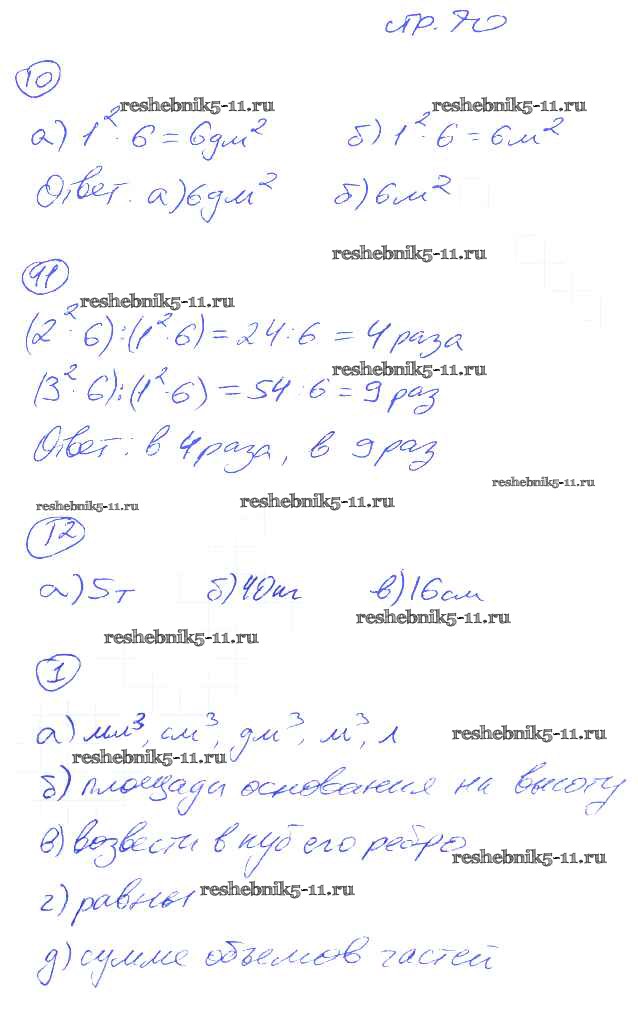 стр. 70
10
reshebnik5-11.ru reshebnik5-11.ru
а) 1² · 6 = 6дм² б) 1² · 6 = 6м²
Ответ. а) 6дм² б) 6м²
reshebnik5-11.ru
11
reshebnik5-11.ru
(2² · 6) : (1² · 6) = 24 : 6 = 4 раза
reshebnik5-11.ru
(3² · 6) : (1² · 6) = 54 : 6 = 9 раз
Ответ: в 4 раза, в 9 раз
reshebnik5-11.ru
reshebnik5-11.ru reshebnik5-11.ru
12
а) 5т б) 40кг в) 16см
reshebnik5-11.ru
reshebnik5-11.ru
1
а) мм³, см³, дм³, м³, л reshebnik5-11.ru
reshebnik5-11.ru
б) площади основания на высоту
в) возвести в куб его ребро
reshebnik5-11.ru
г) равны reshebnik5-11.ru
д) сумме объемов частей